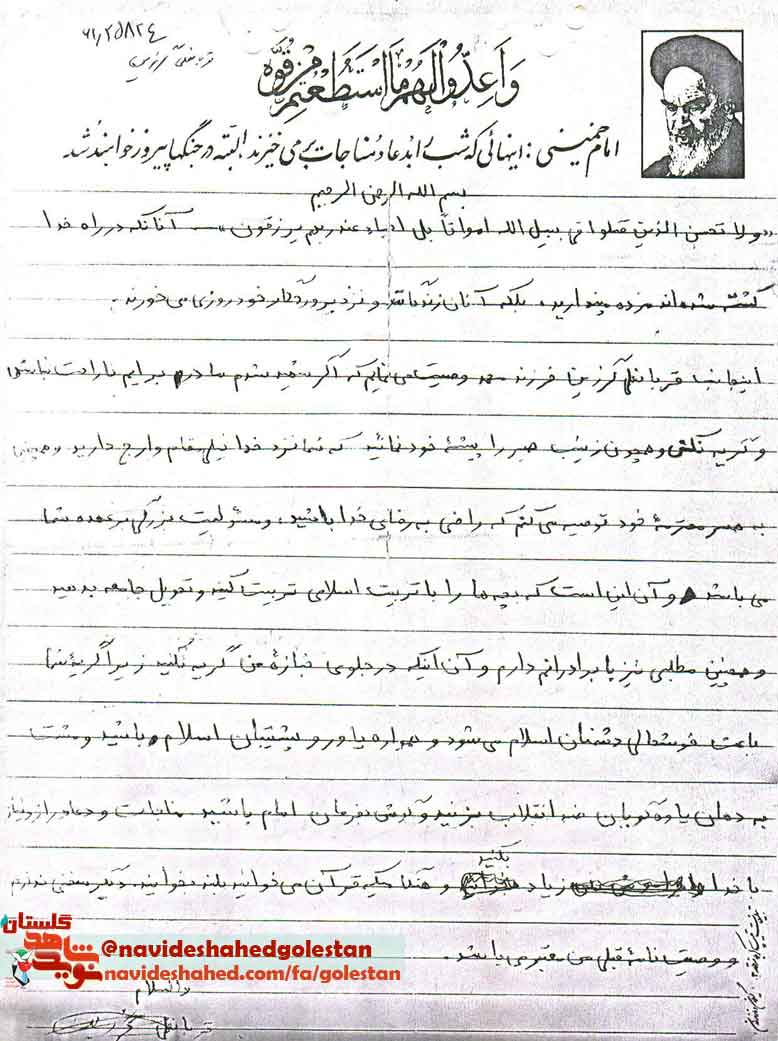 ۶۱٫۲۵۸۲۴
وَاَعِدّوُالَهُم مَااستَطَعتُم مِن قُوَّه
امام خمینی : اینهائی که شب را بدعا و مناجات برمی خیزند البته در جنگها پیروز خواهند شد
بسم الله الرحمن الرحیم
«ولا تحسن الذین قتلوا فی سبیل الله امواتاً بل احیاء عند ربهم یرزقون» ــ آنانکه در راه خدا
کشته شده‌اند مرده مپندارید، بلکه آنان زنده‌اند و نزد پروردگار خود روزی می خورند .
اینجانب قربانعلی گرزین فرزند محمد وصیت می نمایم که اگر شهید شدم مادرم برایم ناراحت نباشی
و گریه نکنی و همچون زینب صبر را پیشهٔ خود نمائید که شما نزد خدا خیلی مقام و ارج دارید و همچنین
به همسر محترمهٔ خود توصیه می کنم که راضی به رضای خدا باشید، ومسئولیت بزرگی بر عهده شما
می باشد و آن این است که بچه ها را با تربیت اسلامی تربیت کنید و تحویل جامعه بدهید
و همچنین مطلبی نیز با برادرانم دارم و آن اینکه در جلوی جنازهٔ من گریه نکنید زیرا گریهٔ شما
باعث خوشحالی دشمنان اسلام می شود و همواره یاور و پشتیبان اسلام باشید و مشت
به دهان یاوه گویان ضد انقلاب بزنید و گوش بفرمان امام باشید مناجات و دعا و راز و نیاز
با خدا را زیاد بکنید و هنگامیکه قرآن می خوانید بلند بخوانید. دیگر سخنی ندارم
و وصیت نامهٔ قبلی من معتبر می باشد.
والسلام
قربانعلی گرزین
نوید شاهد گلستان
@navideshahedgolestan
navideshahed.com/fa/golestan